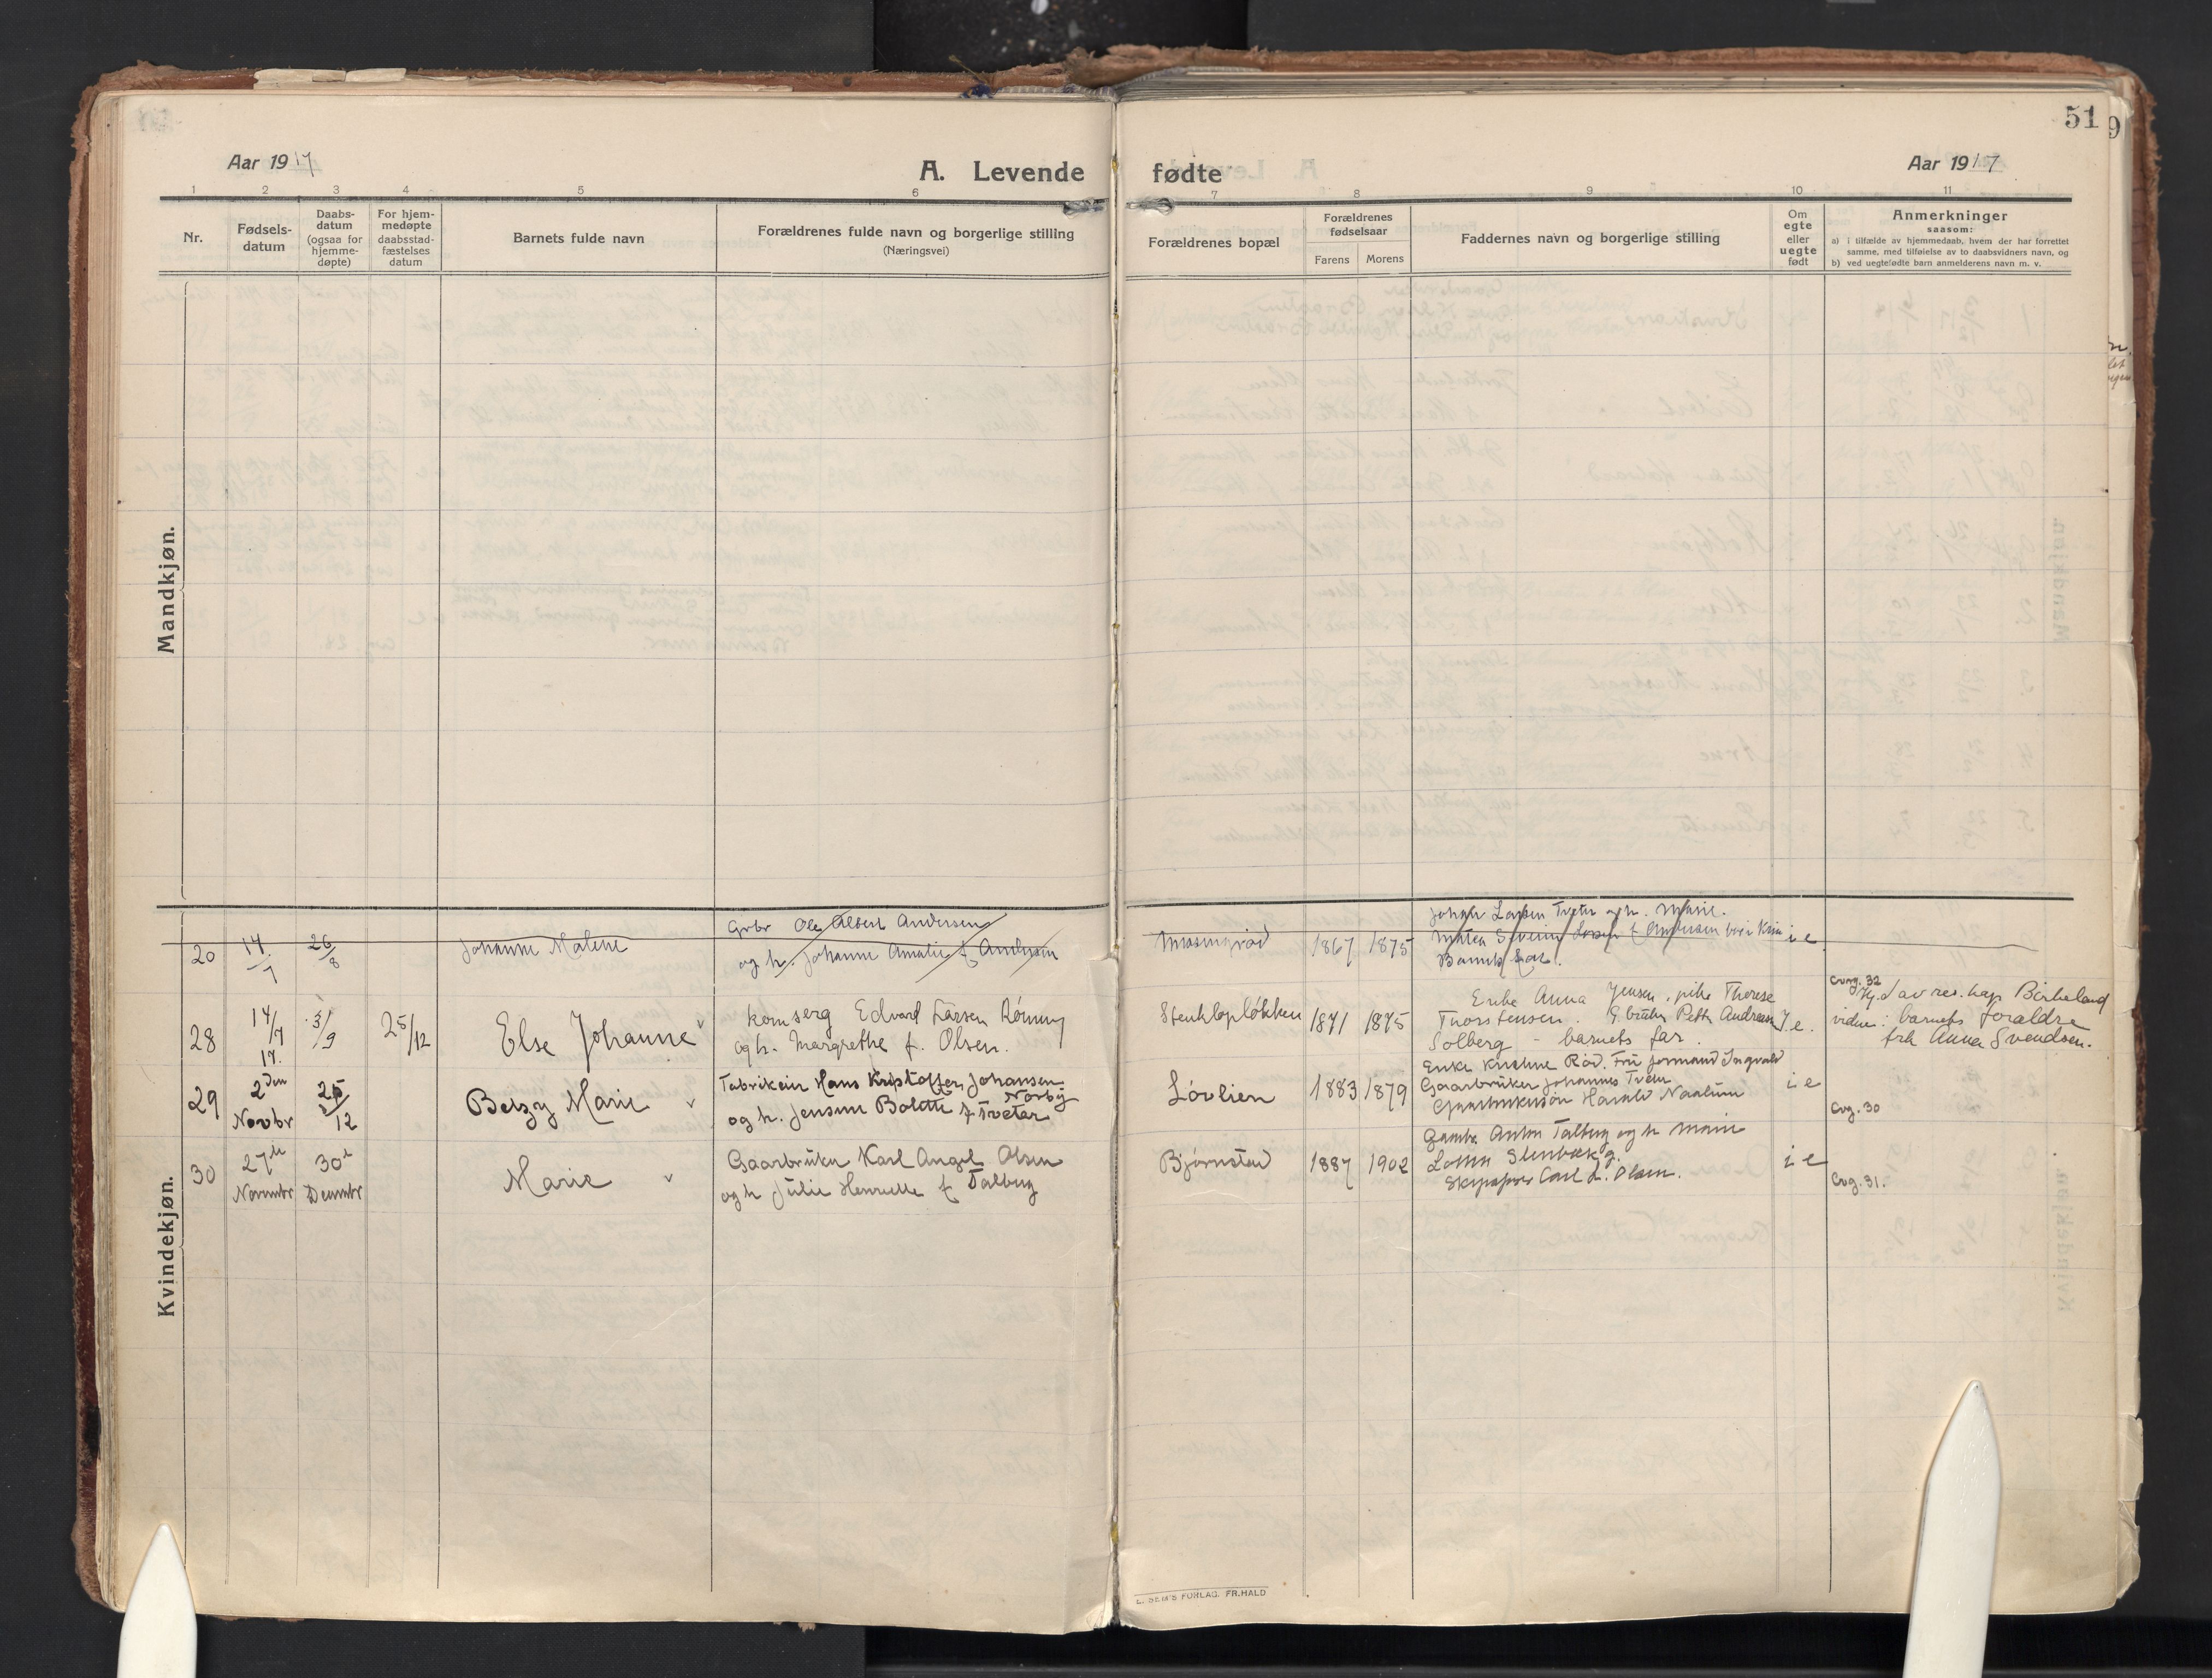 51
9
Aar 1917
A. Levende
fødte
Aar 1917
1 2 3 4 5 6 7 8 9 10 11
Nr.
Fødsels-
datum
Daabs-
datum
(ogsaa for
hjemme-
døpte)
For hjem-
medøpte
daabsstad-
fæstelses
datum
Barnets fulde navn
Forældrenes fulde navn og borgerlige stilling
(Næringsvei)
Forældrenes bopæl
Forældrenes
fødselsaar
Farens Morens
Faddernes navn og borgerlige stilling
Om
egte
eller
uegte
født
Anmerkninger
saasom:
a) i tilfælde av hjemmedaab, hvem der har forrettet
samme, med tilføielse av to daabsvidners navn, og
b) ved uegtefødte barn anmelderens navn m. v.
Mandkjøn.
Kvindekjøn.
20 14/7 26/8 Johanne Malene
Grbr Ole Albert Andersen
og h. Johanne Amalie f. Andersen
1867 1875
Johan Larsen Tveter og h. Marie.
i e
28 14/7 17. 3/9 25/12 Else Johanne
Edvard Larsen Rømmy
og h. Margrethe f. Olsen.
Stenklopløkken 1871 1875
Enke Anna Jensen, pike Therese
Thorstensen. Petter Andreas
Solberg - barnets far.
e.
Cvg. 32
Hj.d av res. kap Birkeland
vidne: barnets forældre
frk Anna Svendsen.
29 2den Novbr 25/12 Betzy Marie
Fabrikeier Hans Kristoffer Johansen
Nørby
og h. Jensine Bolette f. Tveter
Løvlien 1883 1879
Enke Kristine Rød. Fru formand Ingvald
Gaardbruker Johannes Tveter
Harald Narlum
i e
Cvg. 30
30 27de Novembr 30te Decembr Marie
Gaardbruker Karl Angel Olsen
og h Julie Henriette f. Talberg
Bjørnstad 1887 1902
Anton Talberg og h Marie
Skipsfører Carl L. Olsen.
i e
Cvg. 31.
E. SEM'S FORLAG. FR.HALD